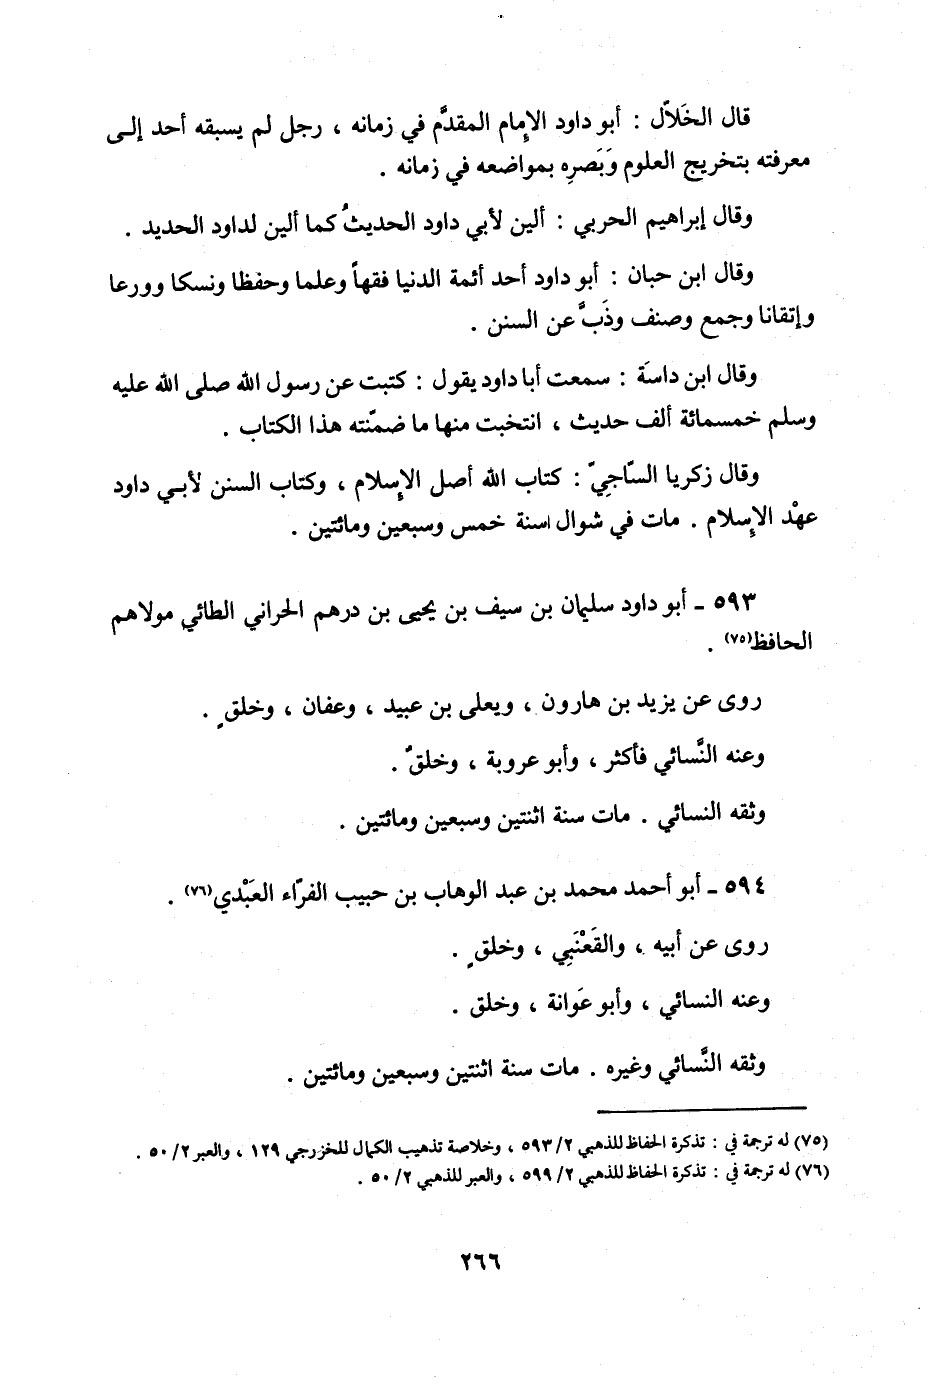 قال الخَلاّل : أبو داود الإمام المقدَّم في زمانه ، رجل لم يسبقه أحد إلى
معرفته بتخريج العلوم وَبَصرِه بمواضعه في زمانه .
وقال إبراهيم الحربي : ألين لأبي داود الحديثُ كما ألين لداود الحديد .
وقال ابن حبان : أبو داود أحد أئمة الدنيا فقهاً وعلما وحفظا ونسكا وورعا
وإتقانا وجمع وصنف وذَبَّ عن السنن .
وقال ابن داسَة : سمعت أبا داود يقول : كتبت عن رسول الله صلى الله عليه
وسلم خمسمائة ألف حديث ، انتخبت منها ما ضمّنته هذا الكتاب .
وقال زكريا السّاجِيّ : كتاب الله أصل الإسلام ، وكتاب السنن لأبي داود
عهْد الإسلام . مات في شوال سنة خمس وسبعين ومائتين .
٥٩٣ ـ أبو داود سليمان بن سيف بن يحيى بن درهم الحراني الطائي مولاهم
الحافظ(٧٥) .
روى عن يزيد بن هارون ، ويعلى بن عبيد ، وعفان ، وخلقٍ .
وعنه النَّسائي فأكثر ، وأبو عروبة ، وخلقٌ .
وثقه النسائي . مات سنة اثنتين وسبعين ومائتين .
٥٩٤ ـ أبو أحمد محمد بن عبد الوهاب بن حبيب الفرّاء العَبْدي(٧٦) .
روى عن أبيه ، والقَعْنَبِي ، وخلقٍ .
وعنه النسائي ، وأبو عَوانة ، وخلق .
وثقه النَّسائي وغيره . مات سنة اثنتين وسبعين ومائتين .
(٧٥) له ترجمة في : تذكرة الحفاظ للذهبي ٢/ ٥٩٣ ، وخلاصة تذهيب الكمال للخزرجي ١٢٩ ، والعبر ٢/ ٥٠ .
(٧٦) له ترجمة في : تذكرة الحفاظ للذهبي ٢/ ٥٩٩ ، والعبر للذهبي ٢/ ٥٠ .
٢٦٦